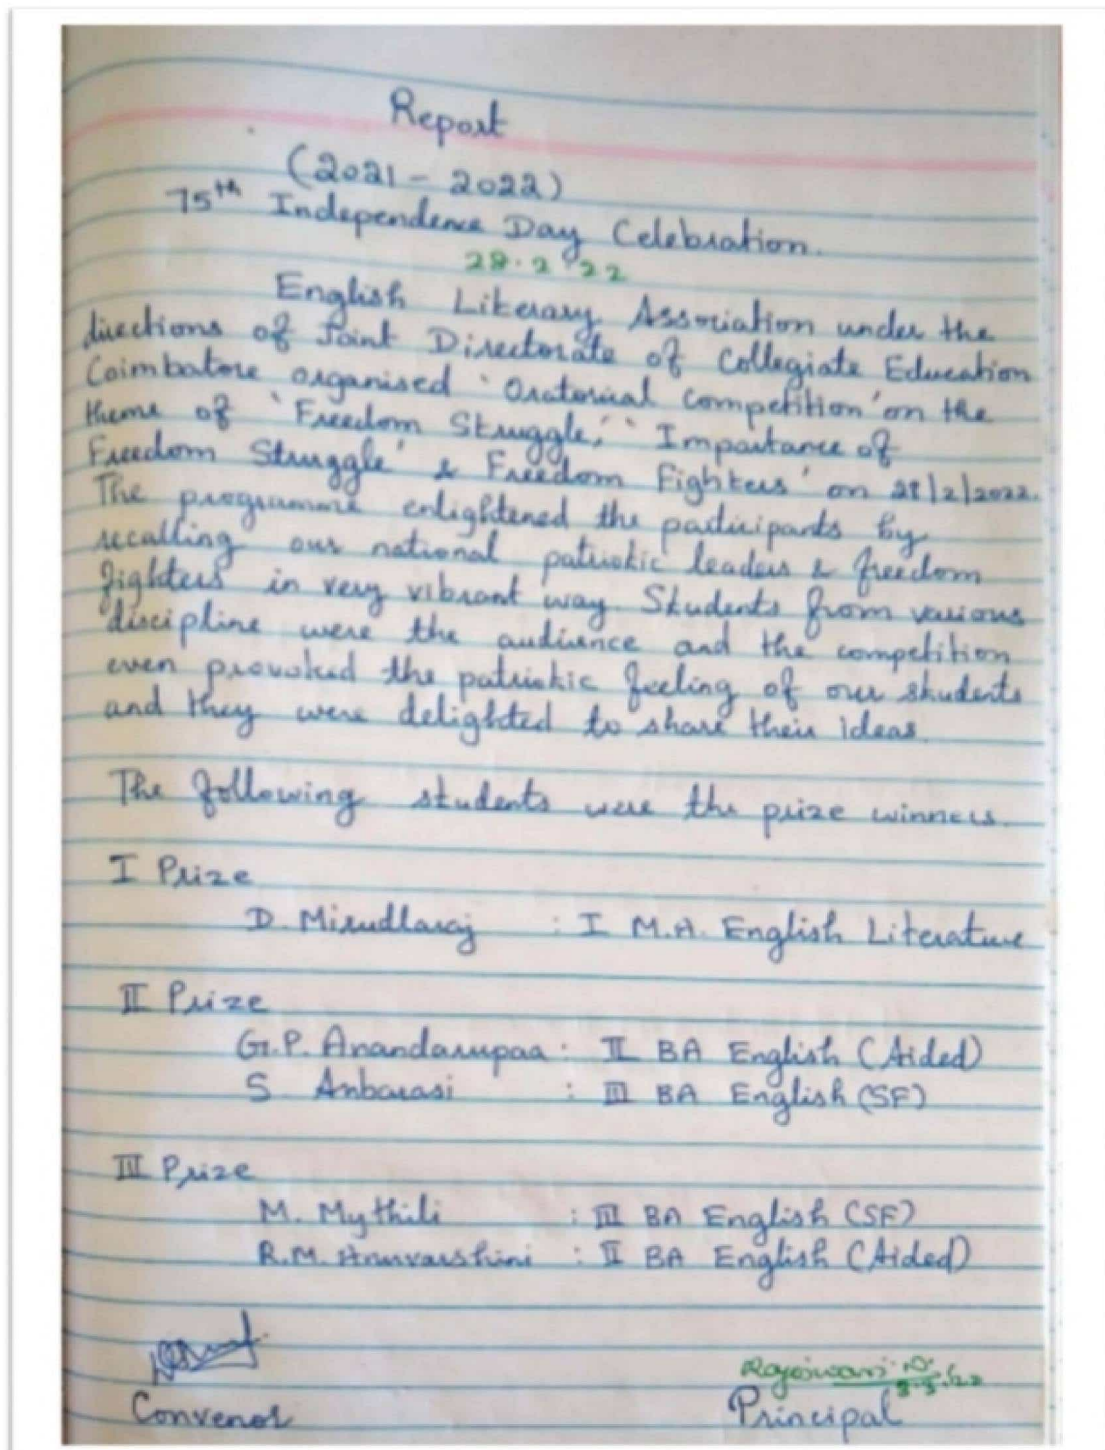 Report
(2021 - 2022)
75th Independence Day Celebration.
28.2.22
English Literary Association under the
directions of Joint Directorate of Collegiate Education
Coimbatore organised 'Oratorical Competition' on the
theme of 'Freedom Struggle,' 'Importance of
Freedom Struggle' & Freedom Fighters' on 28/2/2022.
The programme enlightened the participants by
recalling our national patriotic leaders & freedom
fighters in very vibrant way Students from various
discipline were the audience and the competition
even provoked the patriotic feeling of our students
and they were delighted to share their ideas.
The following students were the prize winners.
I Prize
D. Mirudlaraj : I M.A. English Literature
II Prize
G.P. Anandarupaa : II BA English (Aided)
S. Anbarasi : III BA English (SF)
III Prize
M. Mythili : III BA English (SF)
R.M. Anuvarshini : II BA English (Aided)
Rajeswari
Convenor
Principal